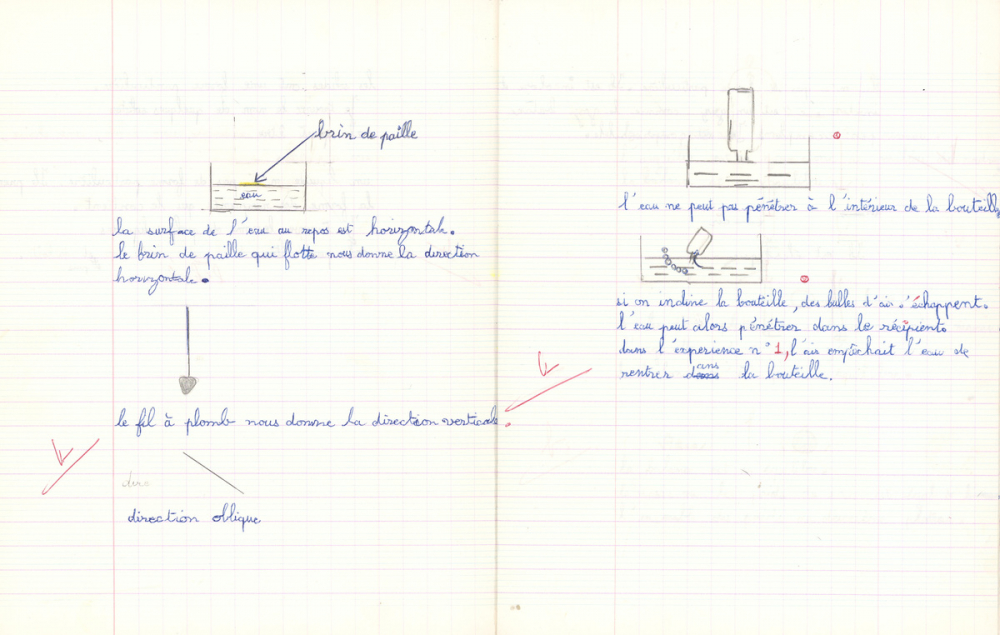 brin de paille
eau
la surface de l'eau au repos est horizontale.
le brin de paille qui flotte nous donne la direction
horizontale.
le fil à plomb nous donne la direction verticale.
direction oblique
l'eau ne peut pas pénétrer à l'intérieur de la bouteille
si on incline la bouteille, des bulles d'air s'échappent.
l'eau peut alors pénétrer dans le récipient.
dans l'experience n° 1, l'air empêchait l'eau de
rentrer dans la bouteille.